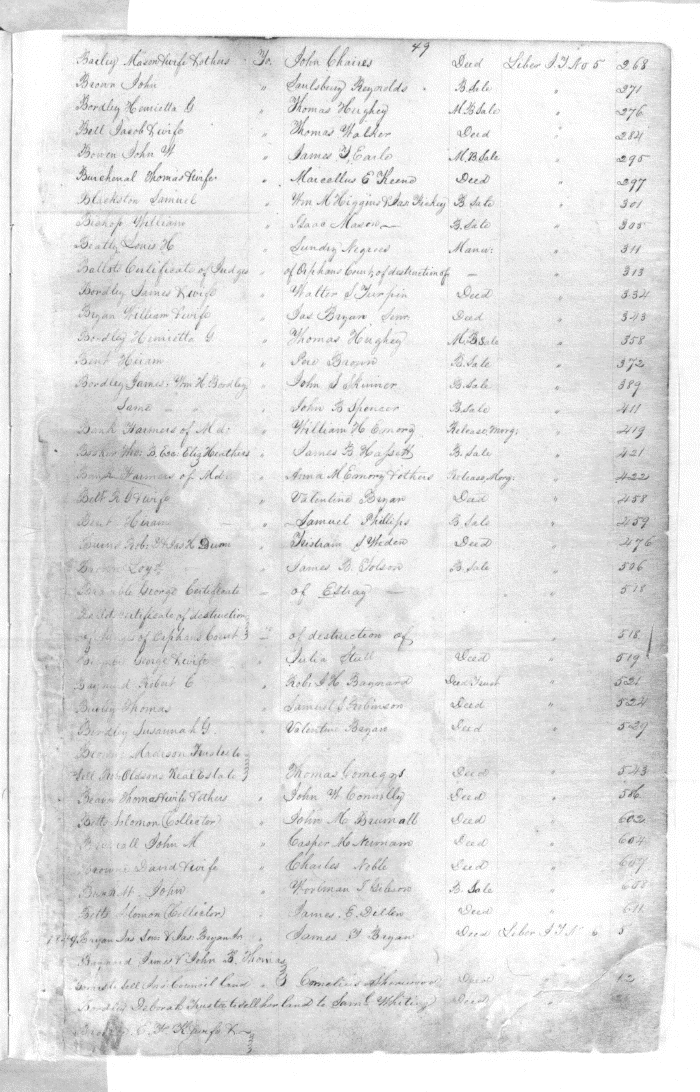 49
Bailey Mason & wife & others To. John Chaires Deed Liber J T No 5 268
Brown John " Saulsbury Reynolds " B. Sale " 271
Bordley Henrietta G " Thomas Hughey M. B Sale " 276
Bell Jacob & wife " Thomas Walker Deed " 284
Bowen John W " James T. Earle M. B Sale " 295
Burchenal Thomas & wife " Marcellus E Keene Deed " 297
Blackston Samuel " Wm M Higgins & Jas. B. Sale " 301
Bishop William " Isaac Mason B. Sale " 305
Beatty Louis H " Sundry Negroes Manu: " 311
Ballots Certificate of Judges " of Orphans Court, of destruction of — " 313
Bordley James & wife " Walter S Turpin Deed " 334
Bryan William & wife " Jas Bryan Senr. Deed " 343
Bordley Henrietta G " Thomas Hughey M. B Sale " 358
Bent Hiram " Pere Brown B. Sale " 372
Bordley James. Wm H Bordley " John S Skinner B. Sale " 389
Same " John B Spencer B. Sale " 411
Bank Farmers of Md: " William H Emory Release Morg: " 419
Booker Tho. B. Exe. Eliz Heathers " James B Hassett B. Sale " 421
Bank Farmers of Md " Anna M Emory & others Release Morg: " 422
Betts R G & wife " Valentine Bryan Deed " 458
Bent Hiram " Samuel Phillips B. Sale " 459
Robt & Jas H " Tristram S Weden Deed " 476
" James B. Tolson B. Sale " 506
Bramble George Certificate of Estray — " 518
Ballot Certificate of destruction
Judges of Orphans Court } of destruction of " 518
George & wife " Julia Stull Deed " 519
Baynard Robert E " Robt J H Baynard Deed Trust " 521
Thomas " Samuel S Robinson Deed " 524
Bordley Susannah G. " Valentine Bryan Deed " 529
Brown Madison Trustee to
Sell Oldsons Real Estate } Thomas Comegys Deed " 543
Thomas wife & others " John W. Connolly Deed " 586
Betts Solomon (Collector) " John M. Brumall Deed " 602
John M " Casper H Neimam Deed " 604
Browne David & wife " Charles Noble Deed " 609
John " Workman S Gibson B. Sale " 608
Betts Solomon (Collector) " James. E. Deed " 611
1849 Bryan Jas Sen. & Jas. Bryan Jr " James T Bryan Deed Liber J T N 6 5
Baynard James & John B. Thomas
to Sell Jas. Council land } Cornelius Sherwood Deed " 12
Bordley Deborah Trustee to sell her land to Saml. Whiting Deed "